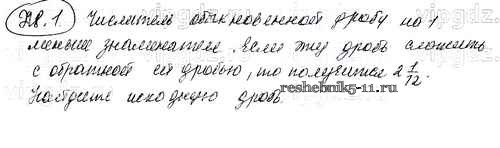 Д.1. Числитель обыкновенной дроби на 1
меньше знаменателя. Если эту дробь сложить
с обратной ей дробью, то получится 2 1/12.
Найдите исходную дробь.
reshebnik5-11.ru